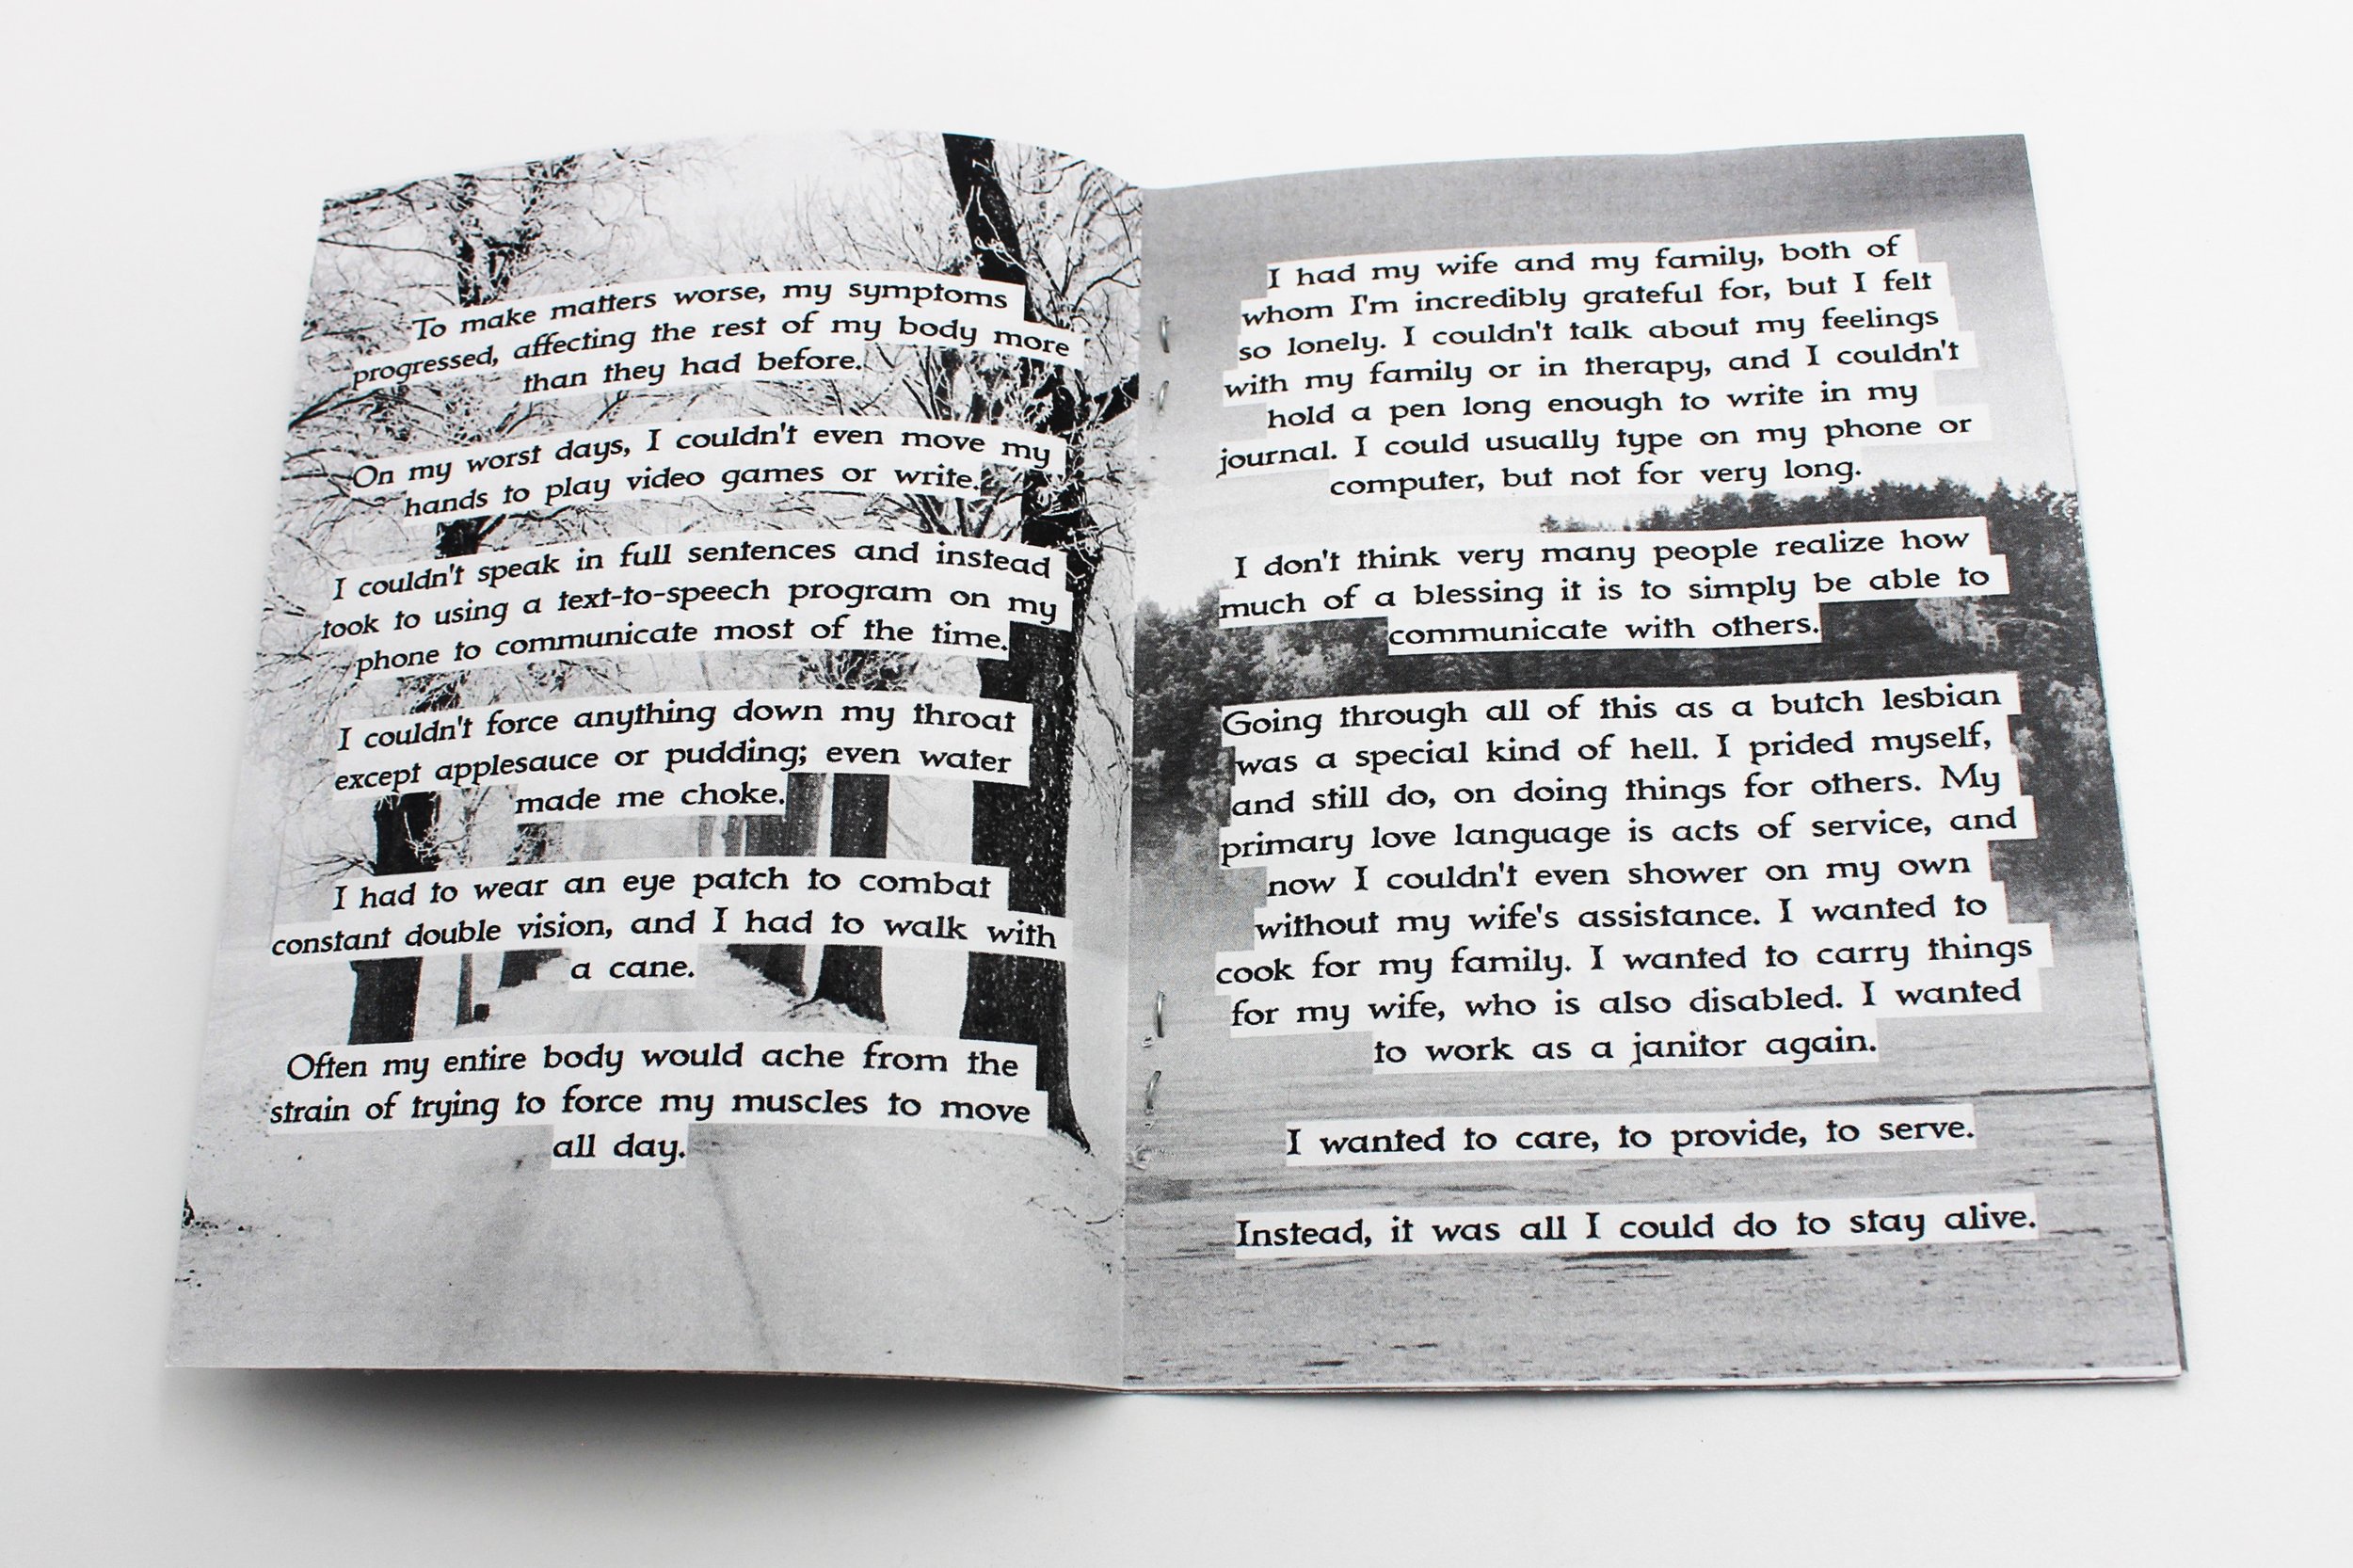 To make matters worse, my symptoms
progressed, affecting the rest of my body more
than they had before.
On my worst days, I couldn't even move my
hands to play video games or write.
I couldn't speak in full sentences and instead
took to using a text-to-speech program on my
phone to communicate most of the time.
I couldn't force anything down my throat
except applesauce or pudding; even water
made me choke.
I had to wear an eye patch to combat
constant double vision, and I had to walk with
a cane.
Often my entire body would ache from the
strain of trying to force my muscles to move
all day.
I had my wife and my family, both of
whom I'm incredibly grateful for, but I felt
so lonely. I couldn't talk about my feelings
with my family or in therapy, and I couldn't
hold a pen long enough to write in my
journal. I could usually type on my phone or
computer, but not for very long.
I don't think very many people realize how
much of a blessing it is to simply be able to
communicate with others.
Going through all of this as a butch lesbian
was a special kind of hell. I prided myself,
and still do, on doing things for others. My
primary love language is acts of service, and
now I couldn't even shower on my own
without my wife's assistance. I wanted to
cook for my family. I wanted to carry things
for my wife, who is also disabled. I wanted
to work as a janitor again.
I wanted to care, to provide, to serve.
Instead, it was all I could do to stay alive.